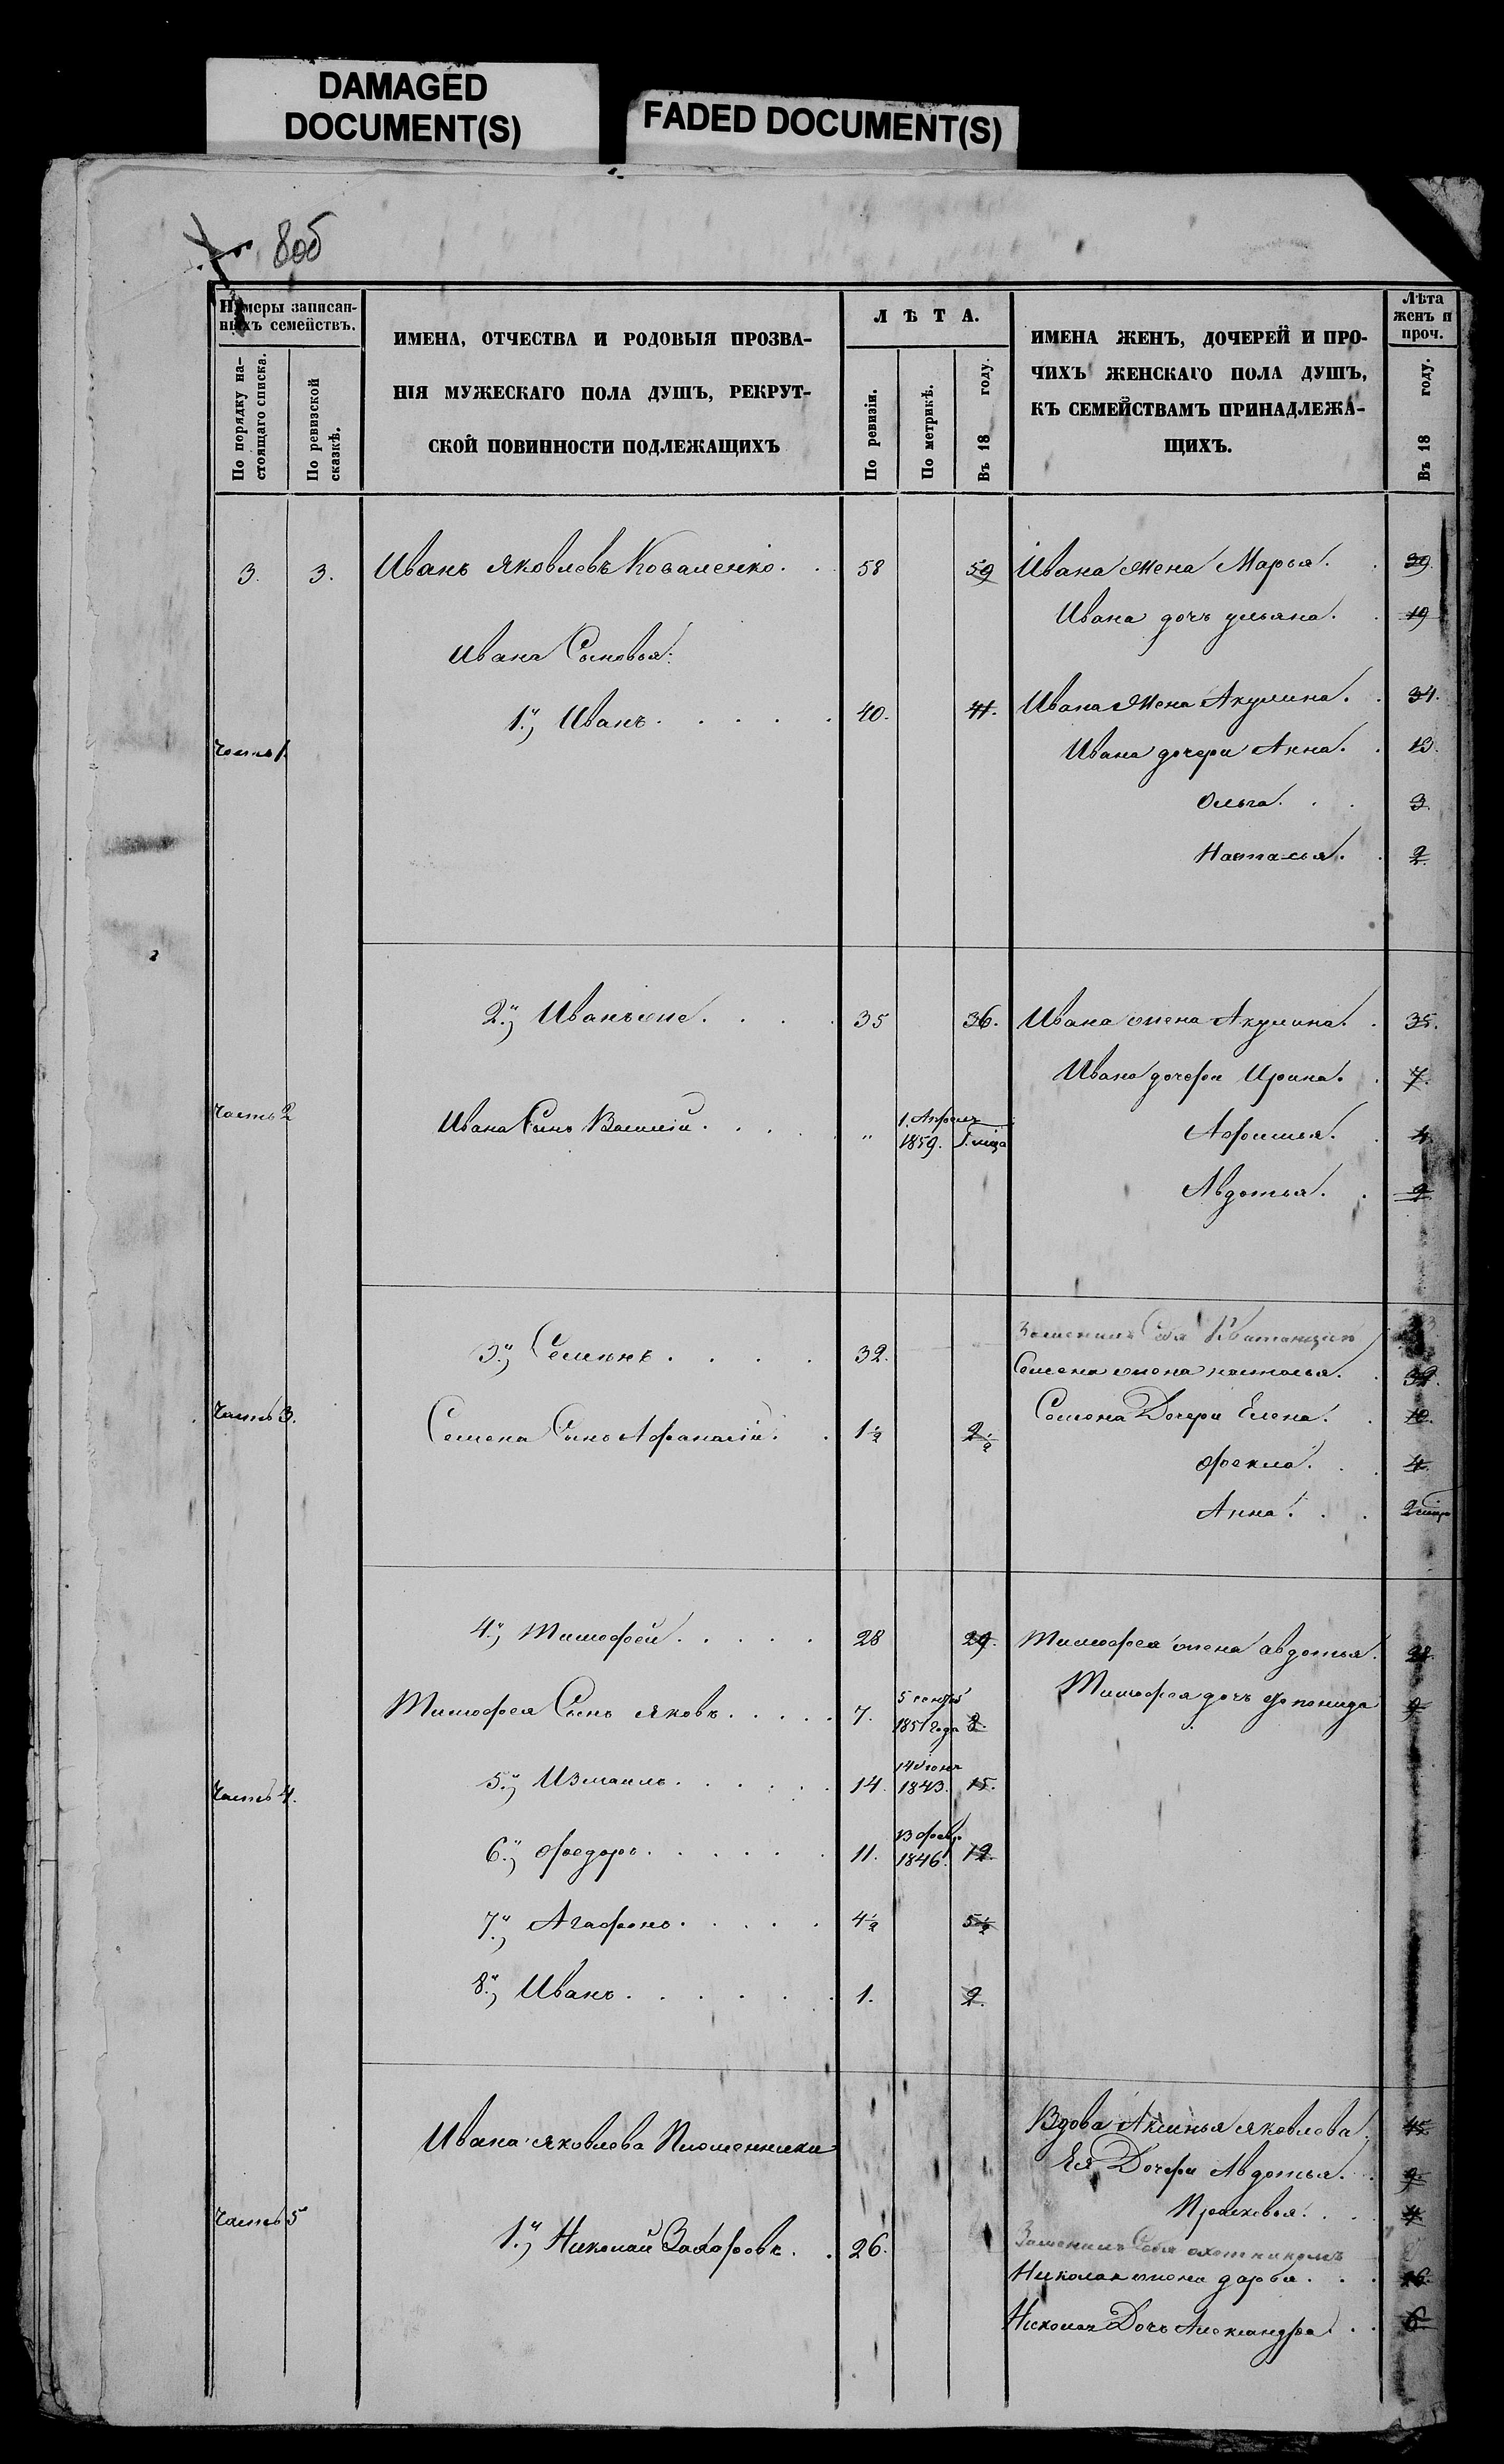 DAMAGED
DOCUMENT(S)
FADED DOCUMENT(S)
80б
Нумеры записан-
ныхъ семействъ.
По порядку на-
стоящаго списка.
По ревизской
сказкѣ.
ИМЕНА, ОТЧЕСТВА И РОДОВЫЯ ПРОЗВА-
НІЯ МУЖЕСКАГО ПОЛА ДУШЪ, РЕКРУТ-
СКОЙ ПОВИННОСТИ ПОДЛЕЖАЩИХЪ
ЛѢТА.
По ревизіи.
По метрикѣ.
Въ 18 году.
ИМЕНА ЖЕНЪ, ДОЧЕРЕЙ И ПРО-
ЧИХЪ ЖЕНСКАГО ПОЛА ДУШЪ,
КЪ СЕМЕЙСТВАМЪ ПРИНАДЛЕЖА-
ЩИХЪ.
Лѣта
женъ и
проч.
Въ 18 году.
3. 3. Иванъ Яковлевъ Коваленко. . 58 59 Ивана жена Марья. . 39.
Ивана дочь ульяна. . 19
Ивана Сыновья:
1.й, Иванъ . . . . . 40. 41. Ивана жена Акулина. . 34.
Часть 1. Ивана дочери Анна. . 13.
Ольга. . . 3.
Наталья. . 2.
2.й, Иванъ же. . . . 35 36. Ивана жена Акулина. . 35.
Ивана дочери Ирина. . 7.
Часть 2 Ивана Сынъ Василій. . . . . " 1. Апрель
1859.
Афимья. . 4.
Авдотья. . 2
Заменилъ Себя Квитанціею
3.й, Семенъ. . . . 32.
Семена жена наталья. . 32.
Часть 3. Семена Дочери Елена. . 10.
Семена Сынъ Афанасій. . 1½ 2½
Фекла. . . 4.
Анна. . .
4.й, Тимофей. . . . . 28 29. Тимофея жена авдотья. 28.
Тимофея Сынъ Яковъ. . . . . 7.
1851 года 8. Тимофея дочь
5.й, Измаилъ. . . . . . 14. 14 Июня
1843. 15.
Часть 4.
6.й, Федоръ. . . . . . 11. 13 февр.
1846. 12.
7.й, Агафонъ. . . . . 4½ 5½
8.й, Иванъ. . . . . . 1. 2.
Ивана Яковлева Племенники
Вдова Аксинья Яковлева. 45.
Ея Дочери Авдотья. . 9.
Прасковья. . . . 4.
Часть 5
1.й, Николай Захаровъ. . 26.
Заменилъ Себя охотникомъ
Николая жена дарья. . . 26.
Николая Дочь Александра. . . 6.